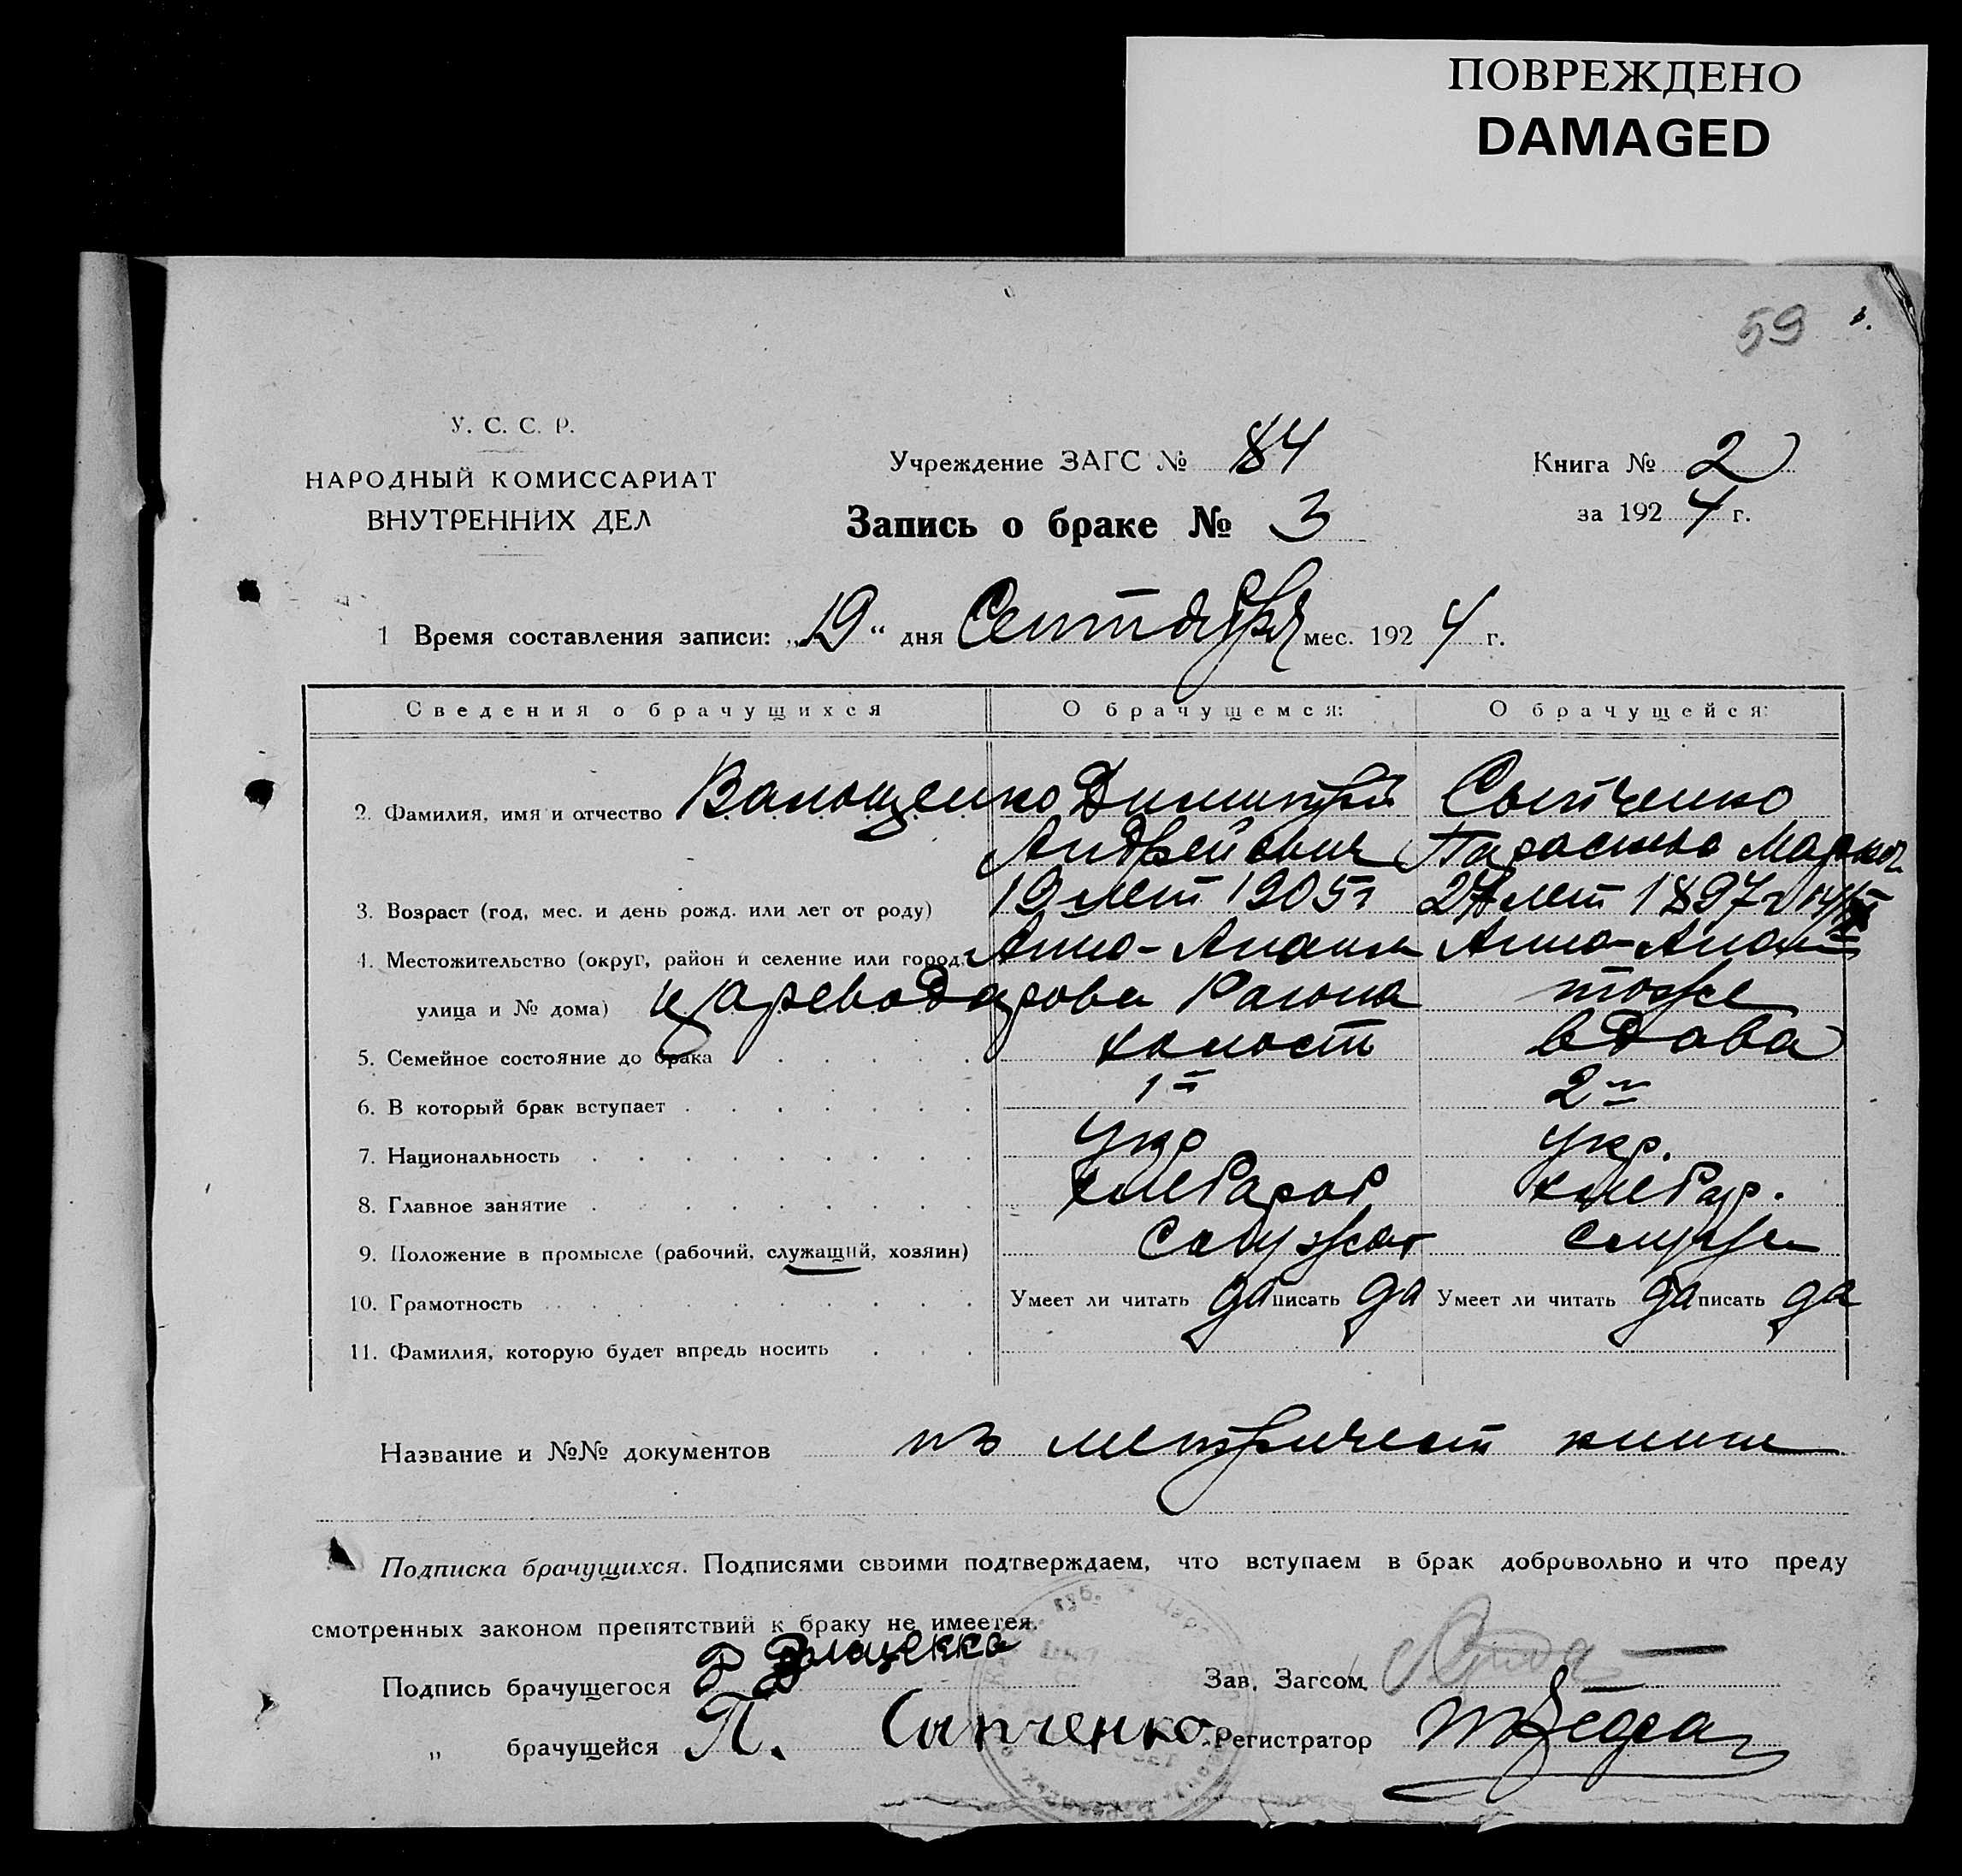 ПОВРЕЖДЕНО
DAMAGED
59
У. С. С. Р.
НАРОДНЫЙ КОМИССАРИАТ
ВНУТРЕННИХ ДЕЛ
Учреждение ЗАГС № 84
Запись о браке № 3
Книга № 2
за 1924 г.
1 Время составления записи: „19“ дня Сентября мес. 1924 г.
Сведения о брачущихся О брачущемся: О брачущейся:
2. Фамилия, имя и отчество Валощенко Димитрий Сытченко
Андрейович Параскева Марков
3. Возраст (год, мес. и день рожд. или лет от роду) 19 лет 1905г 27 лет 1897г
4. Местожительство (округ, район и селение или город, Анно-
улица и № дома) Цареводарова Раиона тоже
5. Семейное состояние до брака холост вдова
6. В который брак вступает 1й 2й
7. Национальность укр укр.
8. Главное занятие хлебороб хлебор.
9. Положение в промысле (рабочий, служащий, хозяин)
10. Грамотность Умеет ли читать да писать да Умеет ли читать да писать да
11. Фамилия, которую будет впредь носить
Название и №№ документов книги
Подписка брачущихся. Подписями своими подтверждаем, что вступаем в брак добровольно и что преду
смотренных законом препятствий к браку не имеется.
Подпись брачущегося
„ брачущейся П. Сипченко
Зав. Загсом
Регистратор